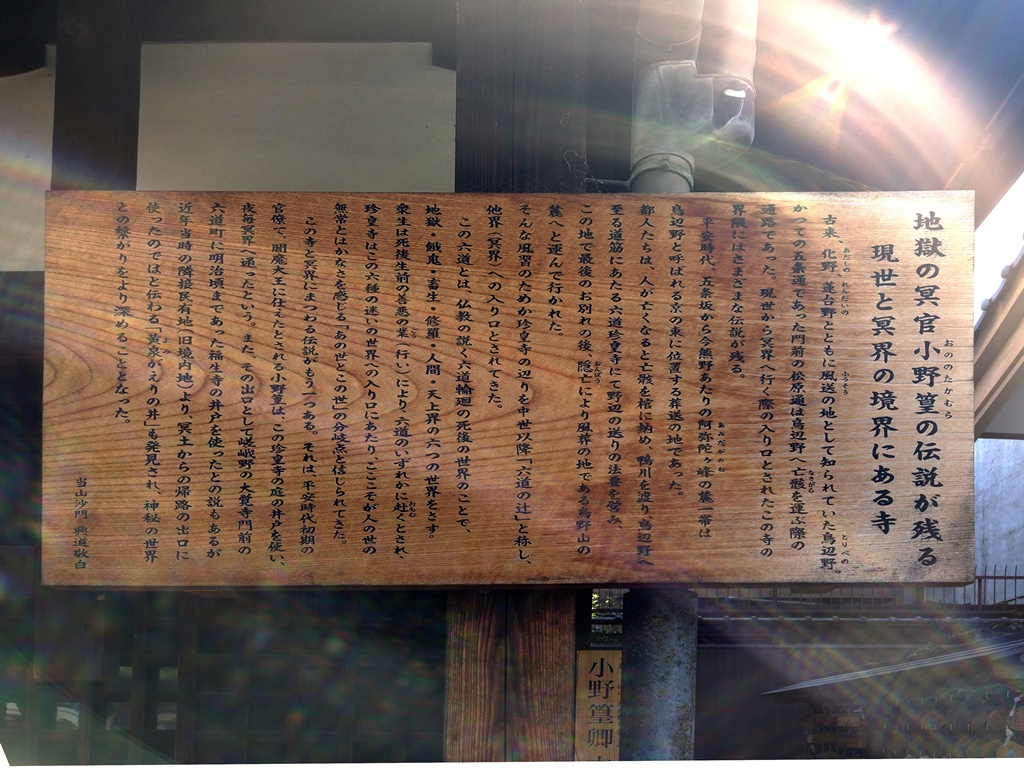 地獄の冥官小野篁の伝説が残る
おののたかむら
現世と冥界の境界にある寺
古来、化野、蓮台野とともに風送の地として知られていた鳥辺野。
あだしの
れんだいの
ふうそう
とりべの
かつての五条通であった門前の松原通は鳥辺野へ亡骸を運ぶ際の
なきがら
通路であった。現世から冥界へ行く際の入り口とされたこの寺の
界隈にはさまざまな伝説が残る。
平安時代、五条坂から今熊野あたりの阿弥陀ヶ峰の麓一帯は
あみだがみね
鳥辺野と呼ばれる京の東に位置する葬送の地であった。
都人たちは、人が亡くなると亡骸を棺に納め、鴨川を渡り鳥辺野へ
至る道筋にあたる六道珍皇寺にて野辺の送りの法要を営み、
この地で最後のお別れの後、隠亡により風葬の地である鳥野山の
おんぼう
麓へと運んで行かれた。
そんな風習のためか珍皇寺の辺りを中世以降「六道の辻」と称し、
他界（冥界）への入り口とされてきた。
この六道とは、仏教の説く六道輪廻の死後の世界のことで、
地獄・餓鬼・畜生・修羅・人間・天上界の六つの世界をさす。
衆生は死後生前の善悪の業（行い）により六道のいずれかに赴くとされ、
ごう
おもむ
珍皇寺はこの六種の迷いの世界への入り口にあたり、ここそが人の世の
無常とはかなさを感じる「あの世とこの世」の分岐点と信じられてきた。
この寺と冥界にまつわる伝説がもう一つある。それは、平安時代初期の
官僚で、閻魔大王に仕えたとされる小野篁は、この珍皇寺の庭の井戸を使い、
夜毎冥界へ通ったという。また、その出口として嵯峨野の大覚寺門前の
六道町に明治頃まであった福生寺の井戸を使ったとの説もあるが
近年当時の隣接民有地（旧境内地）より、冥土からの帰路の出口に
使ったのではと伝わる「黄泉がえりの井」も発見され、神秘の世界
よみ
との繋がりをより深めることとなった。
当山沙門 興道敬白
小野篁卿